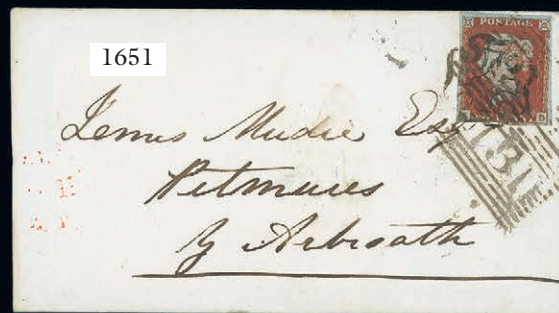 1651
POSTAGE
James Mudie Esq
Pitmuies
By Arbroath
131
D